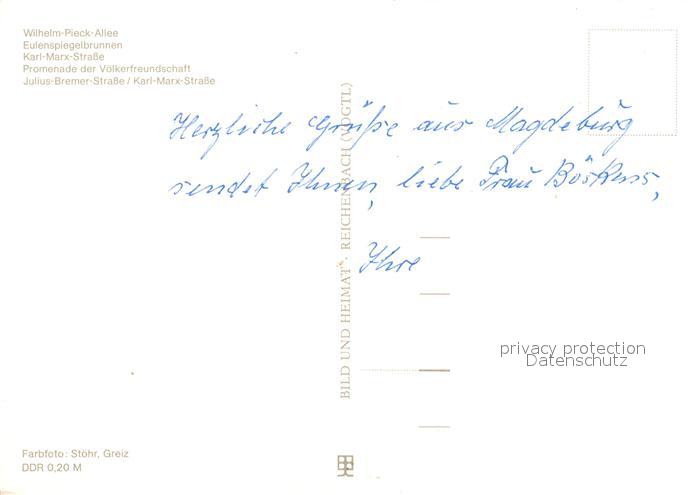 Wilhelm-Pieck-Allee
Eulenspiegelbrunnen
Karl-Marx-Straße
Promenade der Völkerfreundschaft
Julius-Bremer-Straße / Karl-Marx-Straße
Herzliche Grüße aus Magdeburg
sendet Ihnen, liebe Frau Böskens,
Ihre
BILD UND HEIMAT · REICHENBACH (VOGTL)
privacy protection
Datenschutz
Farbfoto: Stöhr, Greiz
DDR 0,20 M